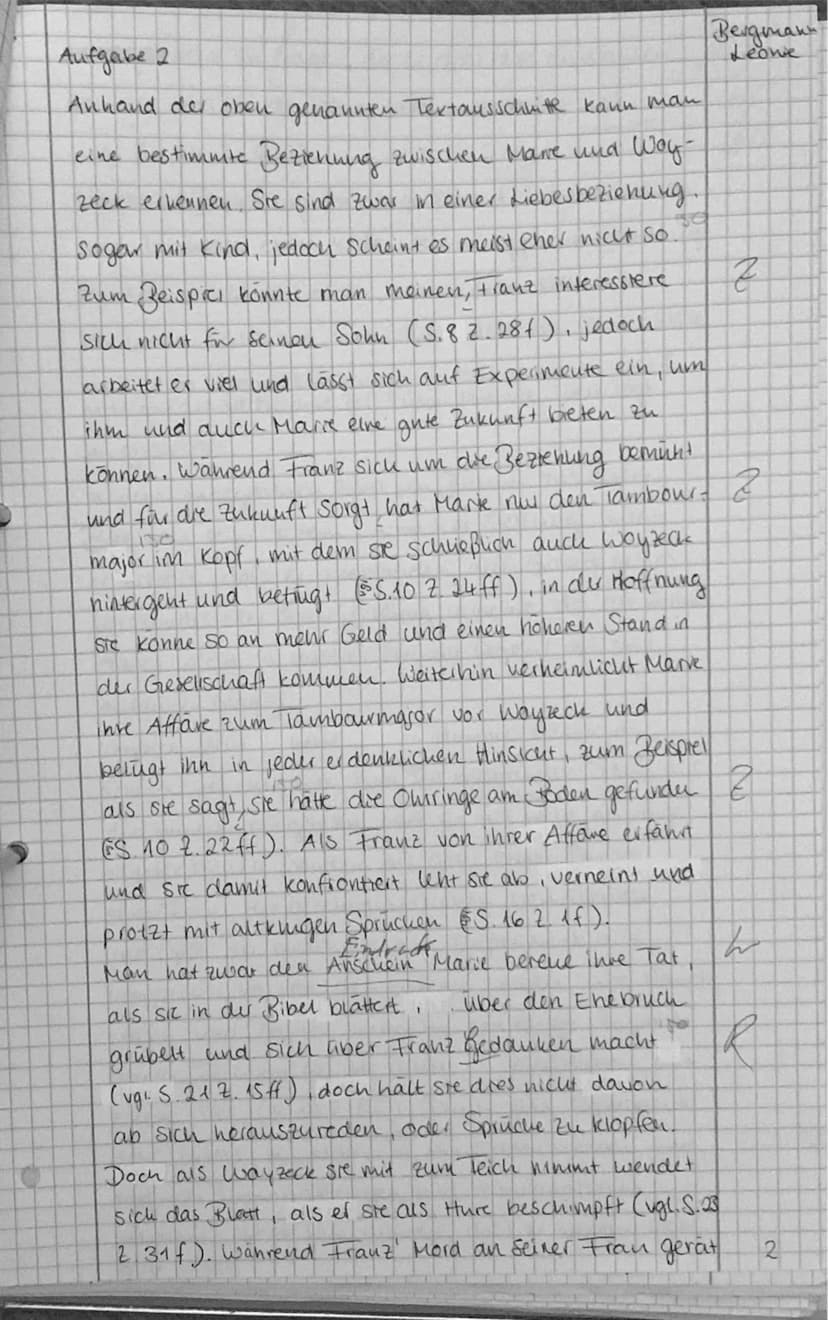 Bergmann
Leonie
Aufgabe 2
Anhand der oben genannten Textausschnitte kann man
eine bestimmte Beziehung zwischen Marie und Woy-
zeck erkennen. Sie sind zwar in einer Liebesbeziehung.
sogar mit Kind, jedoch scheint es meist eher nicht so.
Zum Beispiel könnte man meinen, Franz interessiere Z
sich nicht für seinen Sohn (S.8 Z.28f), jedoch
arbeitet er viel und lässt sich auf Experimente ein, um
ihm und auch Marie eine gute Zukunft bieten zu
können. Während Franz sich um die Beziehung bemüht
und für die Zukunft sorgt, hat Marie nur den Tambour- Z
major im Kopf, mit dem sie schließlich auch Woyzeck
hintergeht und betrügt (S.10 Z.24ff), in der Hoffnung
sie könne so an mehr Geld und einen höheren Stand in
der Gesellschaft kommen. Weiterhin verheimlicht Marie
ihre Affäre zum Tambourmajor vor Woyzeck und
belügt ihn in jeder erdenklichen Hinsicht, zum Beispiel
als sie sagt, sie hätte die Ohrringe am Boden gefunden Z
(S.10 Z.22ff). Als Franz von ihrer Affäre erfährt
und sie damit konfrontiert leht sie ab, verneint und
protzt mit altklugen Sprüchen (S.16 Z.1f).
Eindruck
Man hat zwar den Anschein Marie bereue ihre Tat,
als sie in der Bibel blättert, über den Ehebruch
grübelt und sich über Franz Gedanken macht R
(vgl. S.21 Z.15ff), doch hält sie dies nicht davon
ab sich herauszureden, oder Sprüche zu klopfen.
Doch als Woyzeck sie mit zum Teich nimmt wendet
sich das Blatt, als er sie als Hure beschimpft (vgl. S.23
Z.31f). Während Franz' Mord an seiner Frau gerät 2